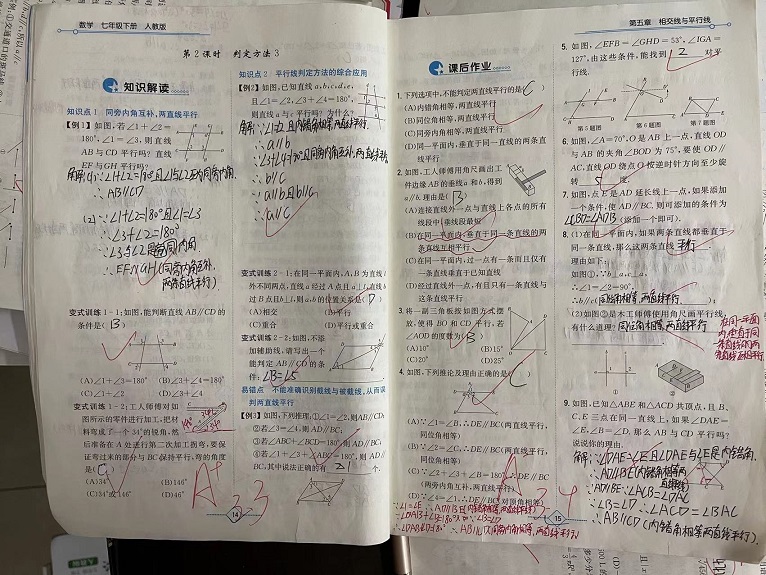 数学 七年级下册 人教版
第2课时 判定方法3
知识解读
知识点1 同旁内角互补,两直线平行
【例1】如图,若∠1+∠2=
180°,∠1=∠3,则直线
AB与CD平行吗?直线
EF与GH平行吗?
∴AB//CD
(2)∵∠1+∠2=180°且∠1=∠3
∴∠3+∠2=180°
∴EF//GH(同旁内角互补,
两直线平行)
变式训练1-1:如图,能判断直线AB//CD的
条件是( B )
(A)∠1+∠3=180° (B)∠3+∠4=180°
(C)∠1+∠2 (D)∠3=∠4
变式训练1-2:工人师傅对如
图所示的零件进行加工,把材
料弯成了一个34°的锐角,然
后准备在A处进行第二次加工拐弯,要保
证弯过来的部分与BC保持平行,弯的角度
是( C )
(A)34° (B)146°
(C)34°或146° (D)46°
14
知识点2 平行线判定方法的综合应用
【例2】如图,已知直线a,b,c,d,e,
且∠1=∠2,∠3+∠4=180°,
则直线a与c平行吗?为什么?
∴a//b
∴b//c
∵a//b且b//c
∴a//c
变式训练2-1:在同一平面内,A,B为直线l
外不同两点,直线a经过A点且a⊥l,直线b
过B点且b⊥l,则a,b的位置关系是( D )
(A)相交 (B)平行
(C)重合 (D)平行或重合
变式训练2-2:如图,不添
加辅助线,请写出一个
能判定AB//CD的条
件:∠B=∠5
易错点 不能准确识别截线与被截线,从而误
判两直线平行
【例3】如图,下列推理:①∠1=∠2,则AB//CD;
②若∠3=∠4,则AD//BC;
③若∠ABC+∠BCD=180°,则AD//BC;
④若∠1+∠2+∠ABC=180°,则AD//
BC,其中说法正确的有 1 个.
第五章 相交线与平行线
课后作业
1.下列选项中,不能判定两直线平行的是( C )
(A)内错角相等,两直线平行
(B)同位角相等,两直线平行
(C)同旁内角相等,两直线平行
(D)同一平面内,垂直于同一直线的两条直
线平行
2.如图,工人师傅用角尺画出工
件边缘AB的垂线a和b,得到
a//b.理由是( B )
(A)连接直线外一点与直线上各点的所有
线段中,垂线段最短
(B)在同一平面内,垂直于同一条直线的两
条直线互相平行
(C)在同一平面内,过一点有一条而且仅有
一条直线垂直于已知直线
(D)经过直线外一点,有且只有一条直线与
这条直线平行
3.将一副三角板按如图方式摆
放,使得BO和CD平行,若
∠AOD的度数为( B )
(A)10° (B)15°
(C)20° (D)25°
4.如图,下列推论及理由正确的是( C )
(A)∵∠B=∠1,∴DE//BC(两直线平行,
同位角相等)
(B)∵∠2=∠C,∴DE//BC(两直线平行,
同位角相等)
(C)∵∠2+∠3+∠B=180°,∴DE//BC
(同旁内角互补,两直线平行)
(D)∵∠4=∠1,∴DE//BC(对顶角相等)
5.如图,∠EFB=∠GHD=53°,∠IGA=
127°,由这些条件,能找到 2 对平
行线.
第5题图 第6题图 第7题图
6.如图,∠A=70°,O是AB上一点,直线OD
与AB的夹角∠BOD为75°,要使OD//
AC,直线OD绕点O按逆时针方向至少旋
转 5 度.
7.如图,点E是AD延长线上一点,如果添加
一个条件,使AD//BC,则可添加的条件为
(添加一个即可).
8.(1)在同一平面内,如果两条直线都垂直于
同一条直线,那么这两条直线 平行
理由如下:
如图①,∵b⊥a,c⊥a,
∴∠1=∠2=90°,
∴b//c( 同位角相等,两直线平行 );
(2)如图②是木工师傅使用角尺画平行线,
有什么道理? 同位角相等,两直线平行
在同一平面
内,垂直于同
一条直线的两
条直线互相平行
① ②
9.如图,已知△ABE和△ACD共顶点,且B、
C、E三点在同一直线上,如果∠DAE=
∠E,∠B=∠D,那么AB与CD平行吗?
说说你的理由.
解:∵∠DAE=∠E且∠DAE与∠E是内错角
∴AD//BE(内错角相等两
直线平行)
∵AD//BE∴∠ACB=∠DAC
∴AB//CD(内错角相等两直线平行)
15